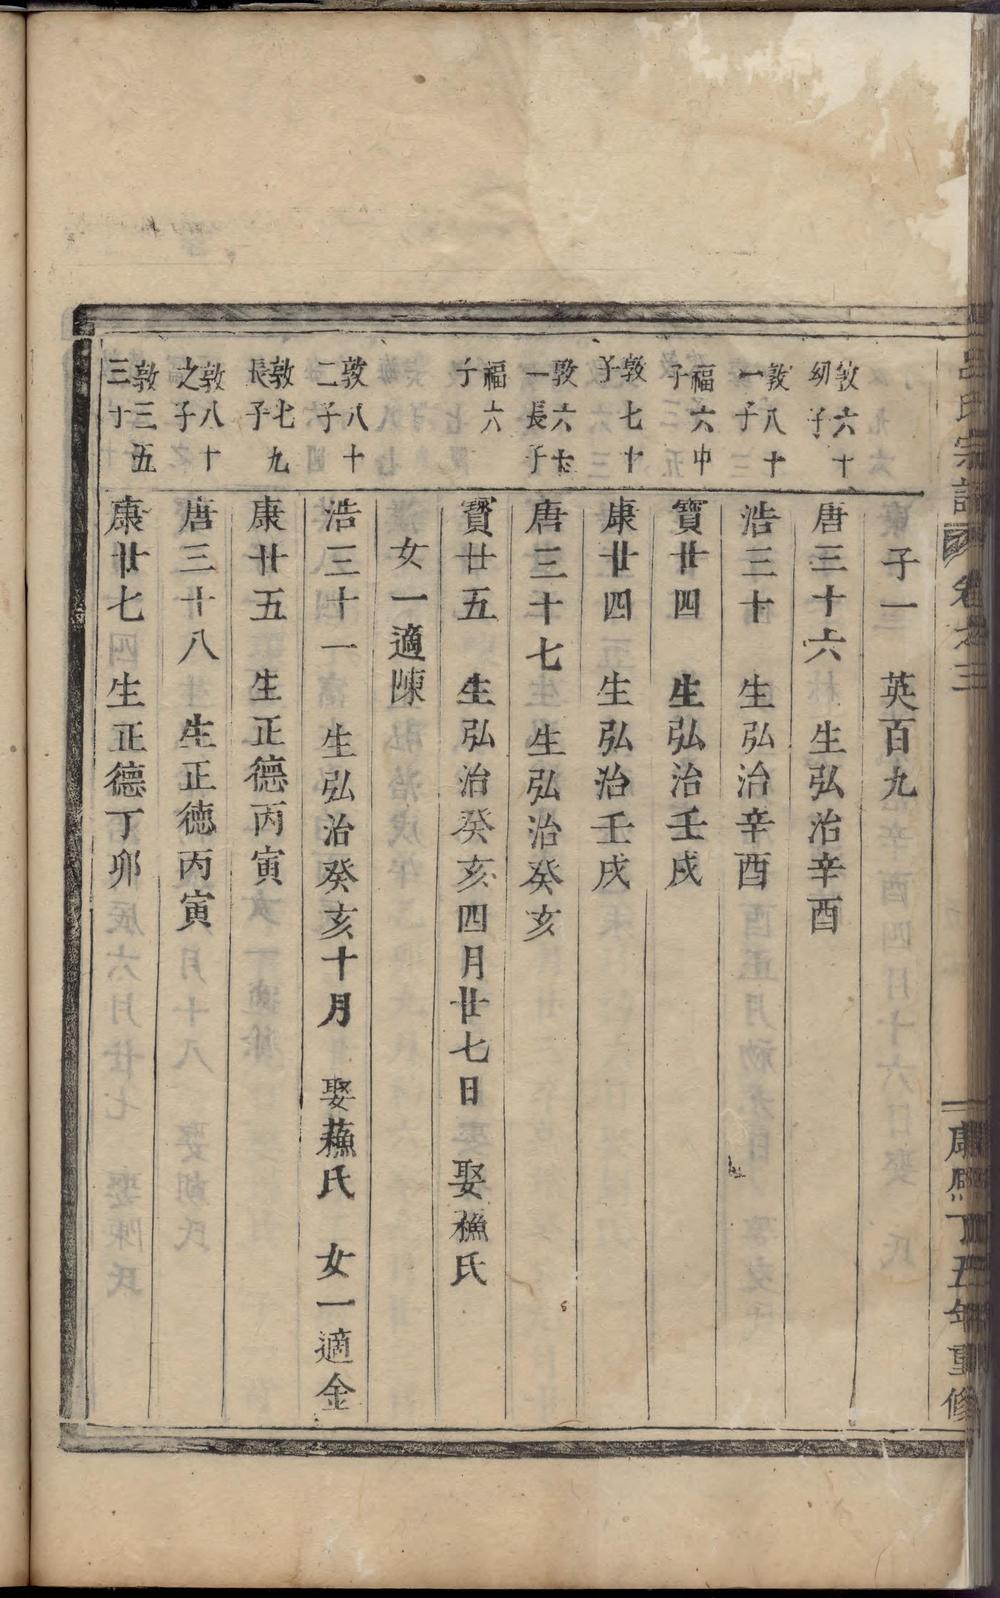 呂氏宗譜 卷之三 康熙丁丑年重修
子一 英百九
敦六十幼子
唐三十六 生弘治辛酉
敦八十一子
浩三十 生弘治辛酉
福六中子
寶廿四 生弘治壬戌
敦七十子
康廿四 生弘治壬戌
敦六十一長子
唐三十七 生弘治癸亥
福六子
寶廿五 生弘治癸亥四月廿七日 娶蘓氏
女一適陳
敦八十二子
浩三十一 生弘治癸亥十月 娶蘓氏 女一適金
敦七九長子
康廿五 生正德丙寅
敦八十之子
唐三十八 生正德丙寅
敦三五三子
康廿七 生正德丁卯